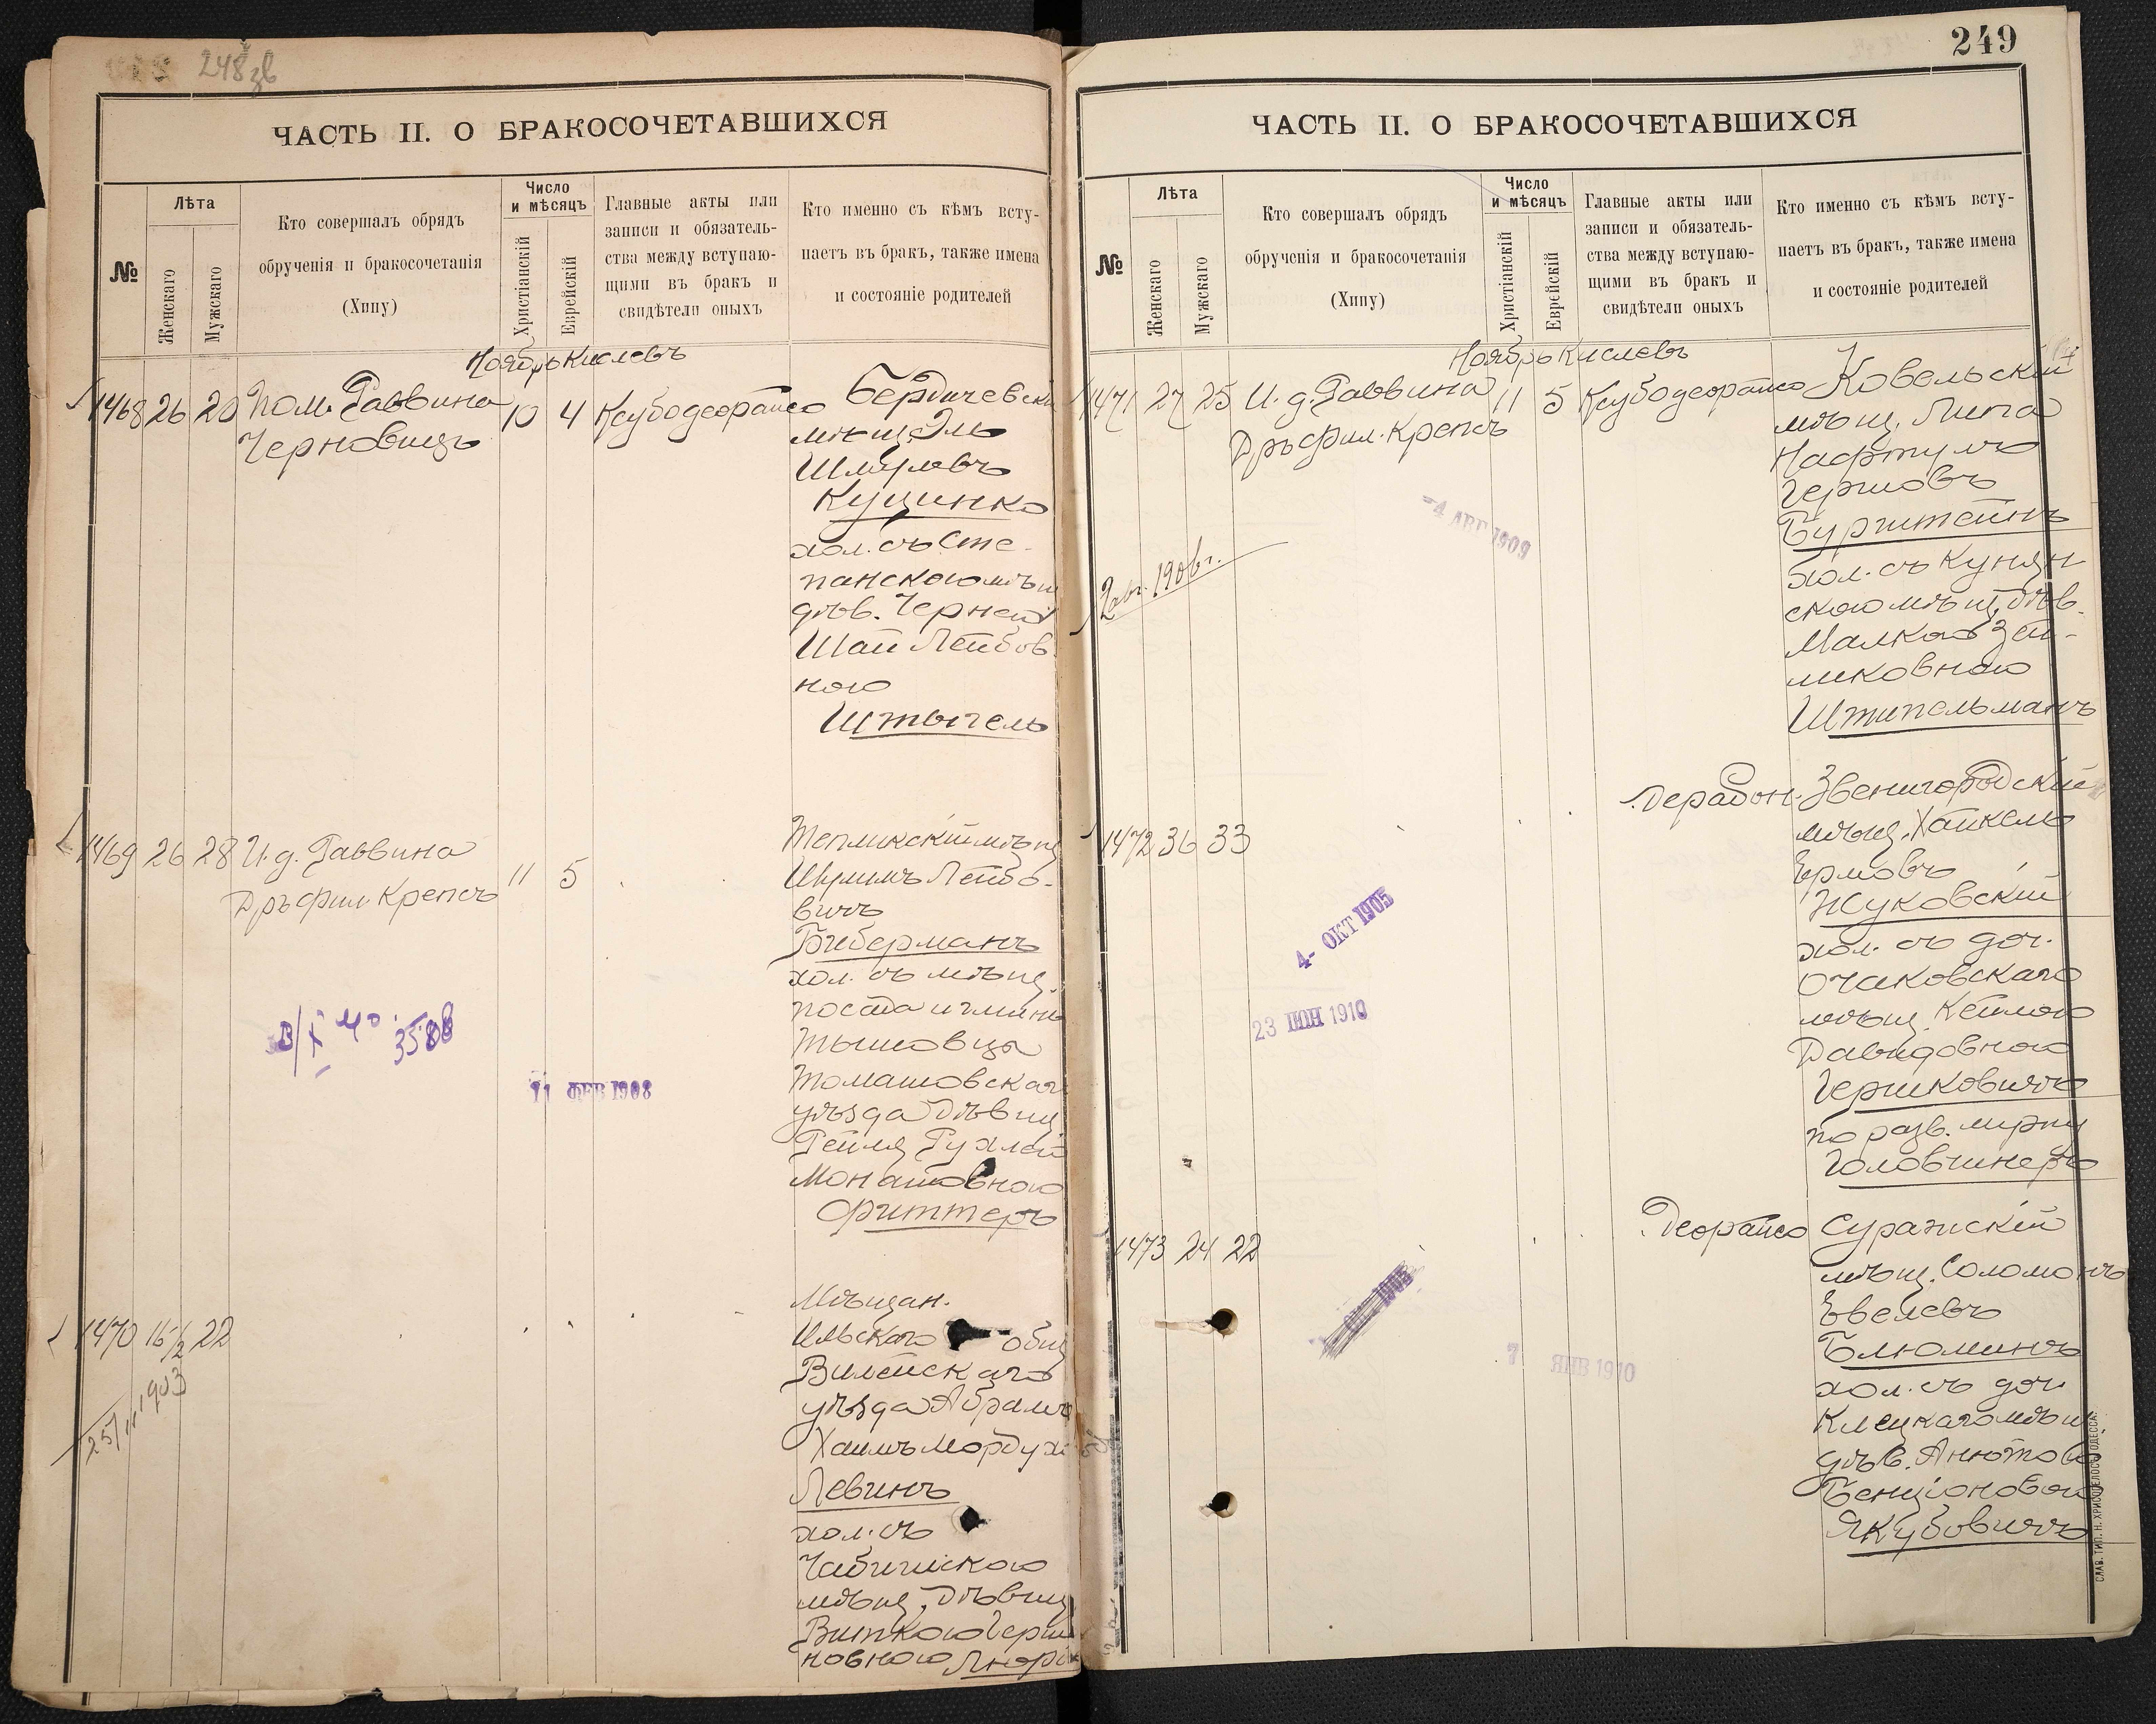 248 зв
ЧАСТЬ II. О БРАКОСОЧЕТАВШИХСЯ
№
Лѣта
Женскаго
Мужскаго
Кто совершалъ обрядъ
обрученія и бракосочетанія
(Хипу)
Число
и мѣсяцъ
Христіанскій
Еврейскій
Главные акты или
записи и обязатель-
ства между вступаю-
щими въ бракъ и
свидѣтели оныхъ
Кто именно съ кѣмъ всту-
паетъ въ бракъ, также имена
и состояніе родителей
Ноябрь Кислевъ
1468 26 20 Пом. Раввина 10 4
Черновицъ
Бердичевскій
мѣщ. Эль
Шмулевъ
Куцинко
хол. съ Сте-
панскою мѣщ
дѣв. Черней
Шаи Лейбов
ною
Штыгель
1469 26 28 И. д. Раввина 11 5
Дръ фил. Крепсъ
Тепликскій мѣщ
Шулимъ Лейбо-
вичъ
Биберманъ
хол. съ мѣщ.
посада и гмины
Тышовцы
Томашовскаго
уѣзда дѣвиц
Рейля Рухлей
Монашовною
Фиттеръ
3588
11 ФЕВ 1908
1470 16½ 22
25/11 1903
Мѣщан.
Ильскаго общ
Вилейскаго
уѣзда Абрамъ
Хаимъ Мордухо
Левинъ
хол. съ
мѣщ. дѣвиц
Виткою Герш
новною
249
ЧАСТЬ II. О БРАКОСОЧЕТАВШИХСЯ
№
Лѣта
Женскаго
Мужскаго
Кто совершалъ обрядъ
обрученія и бракосочетанія
(Хипу)
Число
и мѣсяцъ
Христіанскій
Еврейскій
Главные акты или
записи и обязатель-
ства между вступаю-
щими въ бракъ и
свидѣтели оныхъ
Кто именно съ кѣмъ всту-
паетъ въ бракъ, также имена
и состояніе родителей
Ноябрь Кислевъ
1471 27 25 И. д. Раввина 11 5
Дръ фил. Крепсъ
Ковельскій
мѣщ. Липа
Нафтула
Гершовъ
Бурштейнъ
хол. съ Кунян
скою мѣщ. дѣв.
Малкою Зей-
ликовною
Штипельманъ
-4 АВГ 1909
2 авг. 1906 г.
1472 36 33
Звенигородскій
мѣщ. Хайкель
Ермовъ
Жуковскій
хол. съ доч.
Очаковскаго
мѣщ. Кейлою
Давидовною
Гершковичъ
по разв. мужу
Головчинеръ
4- ОКТ 1905
23 ІЮН 1910
1473 24 22
Суражскій
мѣщ. Соломонъ
Евелевъ
Блюминъ
хол. съ доч
Клецкаго мѣщ
дѣв. Анютою
Бенціоновою
Якубовичъ
7 ЯНВ 1910
СЛАВ. ТИП. Н. ХРИСОГЕЛОСЪ, ОДЕССА.